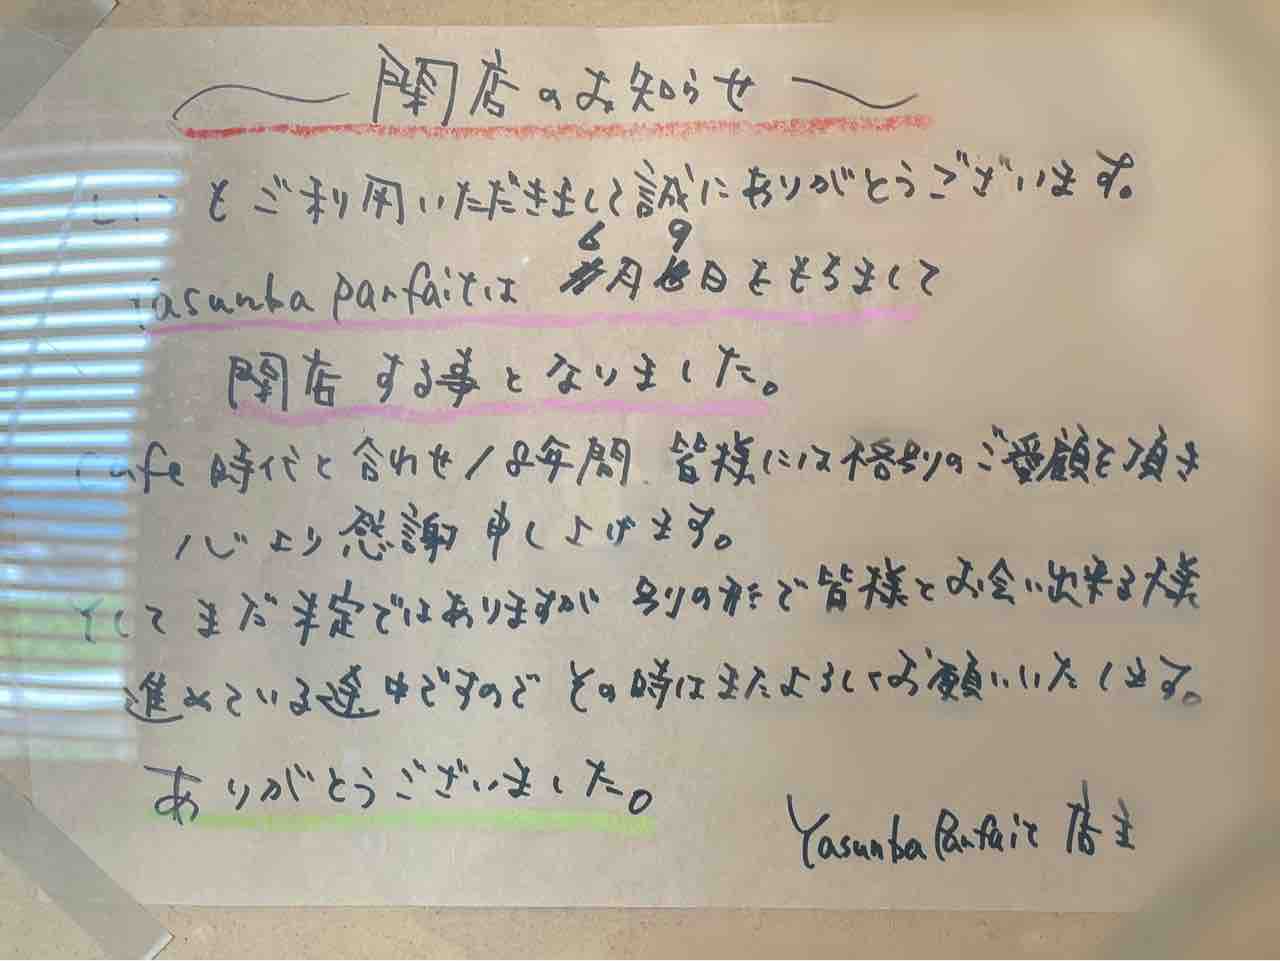 閉店のお知らせ
いつもご利用いただきまして誠にありがとうございます。
Yasunba parfaitは 6月9日をもちまして
閉店する事となりました。
Cafe時代と合わせ18年間 皆様には格別のご愛顧を頂き
心より感謝申し上げます。
そしてまだ未定ではありますが 別の形で皆様とお会い出来る様
進めている途中ですので その時はまたよろしくお願いいたします。
ありがとうございました。
Yasunba Parfait 店主